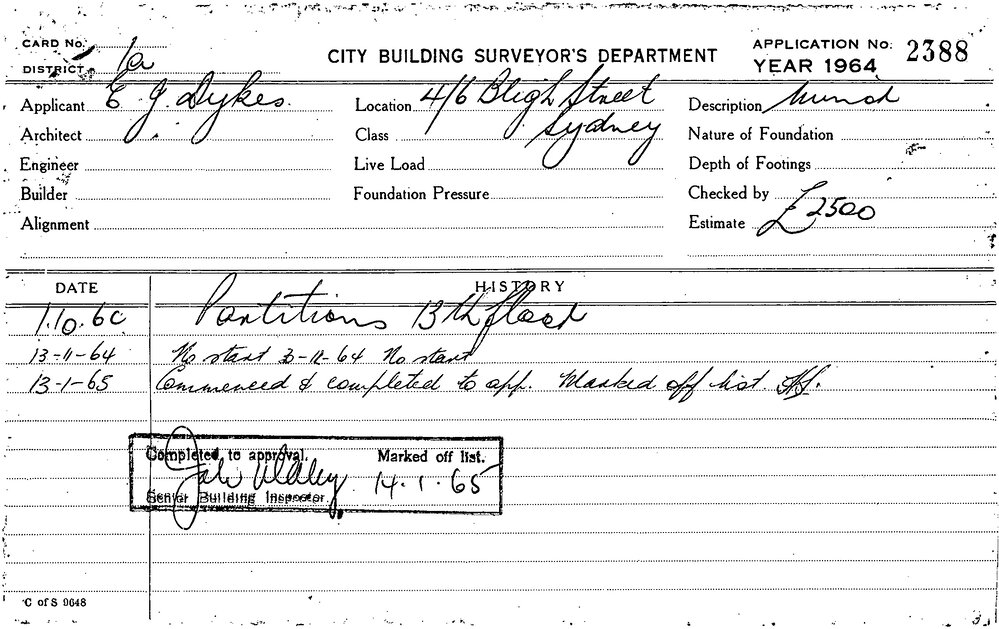 CARD No. CITY BUILDING SURVEYOR'S DEPARTMENT APPLICATION No. 2388
DISTRICT 1a YEAR 1964
Applicant E J Dykes. Location 4/6 Bligh Street Description
Architect Class Sydney Nature of Foundation
Engineer Live Load Depth of Footings
Builder Foundation Pressure Checked by
Alignment Estimate £2500
DATE HISTORY
1.10.6 Partitions 13th floor
13-11-64 No start 3-12-64 No start
13-1-65 Commenced & completed to app. Marked off list.
Completed to approval. Marked off list.
14.1.65
Senior Building Inspector.
C of S 9648